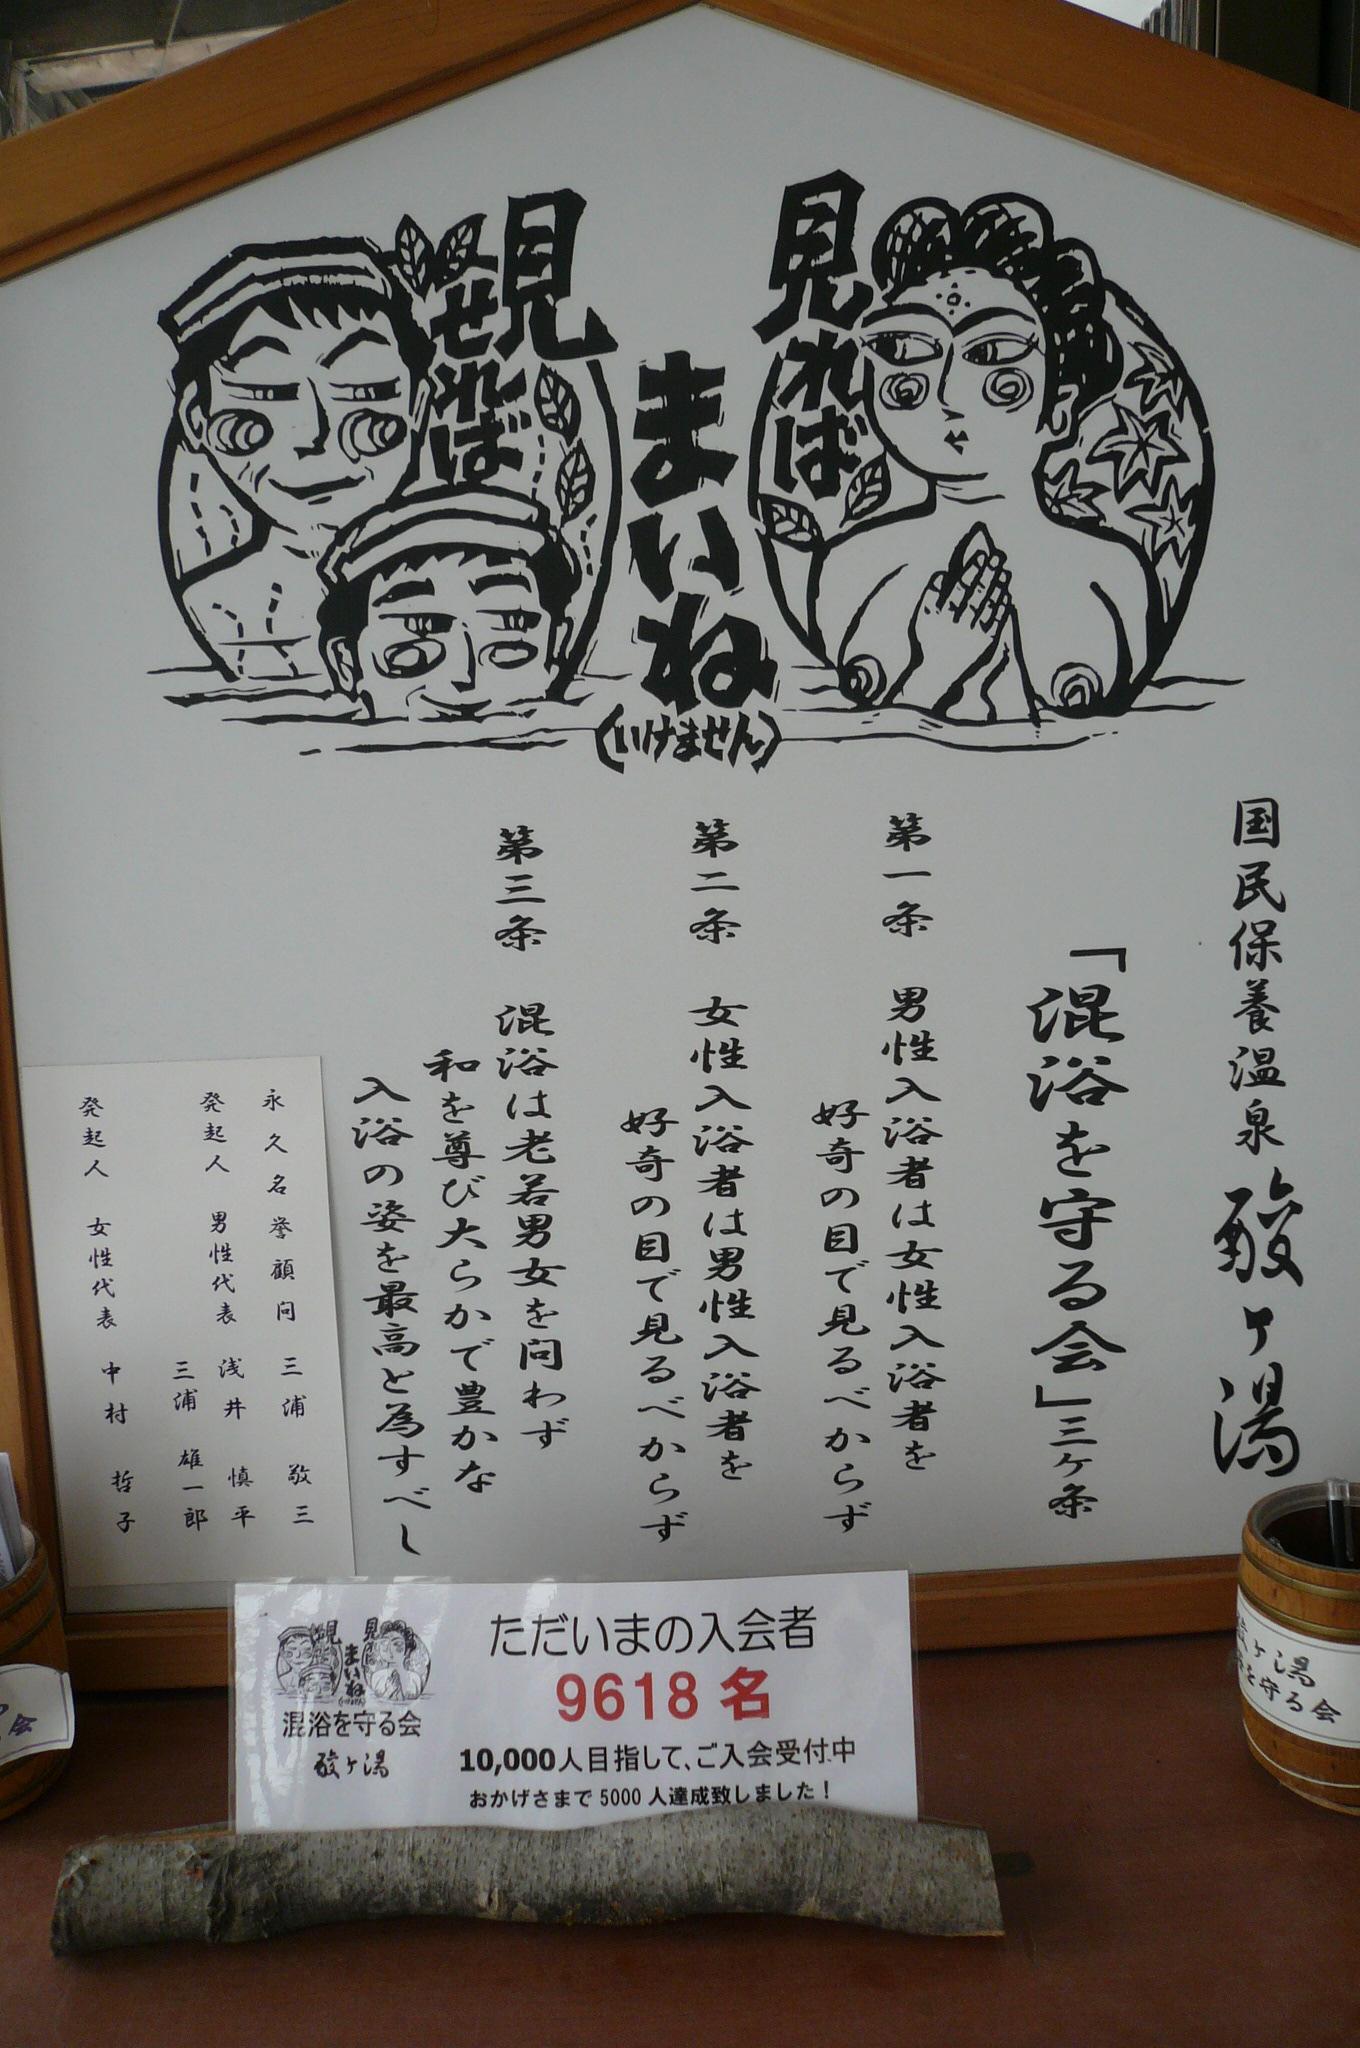 見れば
まいね
(いけません)
見せれば
国民保養温泉 酸ヶ湯
「混浴を守る会」三ヶ条
第一条 男性入浴者は女性入浴者を
好奇の目で見るべからず
第二条 女性入浴者は男性入浴者を
好奇の目で見るべからず
第三条 混浴は老若男女を問わず
和を尊び大らかで豊かな
入浴の姿を最高と為すべし
永久名誉顧問 三浦 敬三
発起人 男性代表 浅井 慎平
三浦 雄一郎
発起人 女性代表 中村 哲子
見れば
まいね
見せれば
混浴を守る会
酸ヶ湯
ただいまの入会者
9618 名
10,000人目指して、ご入会受付中
おかげさまで 5000 人達成致しました!
酸ヶ湯
を守る会
会